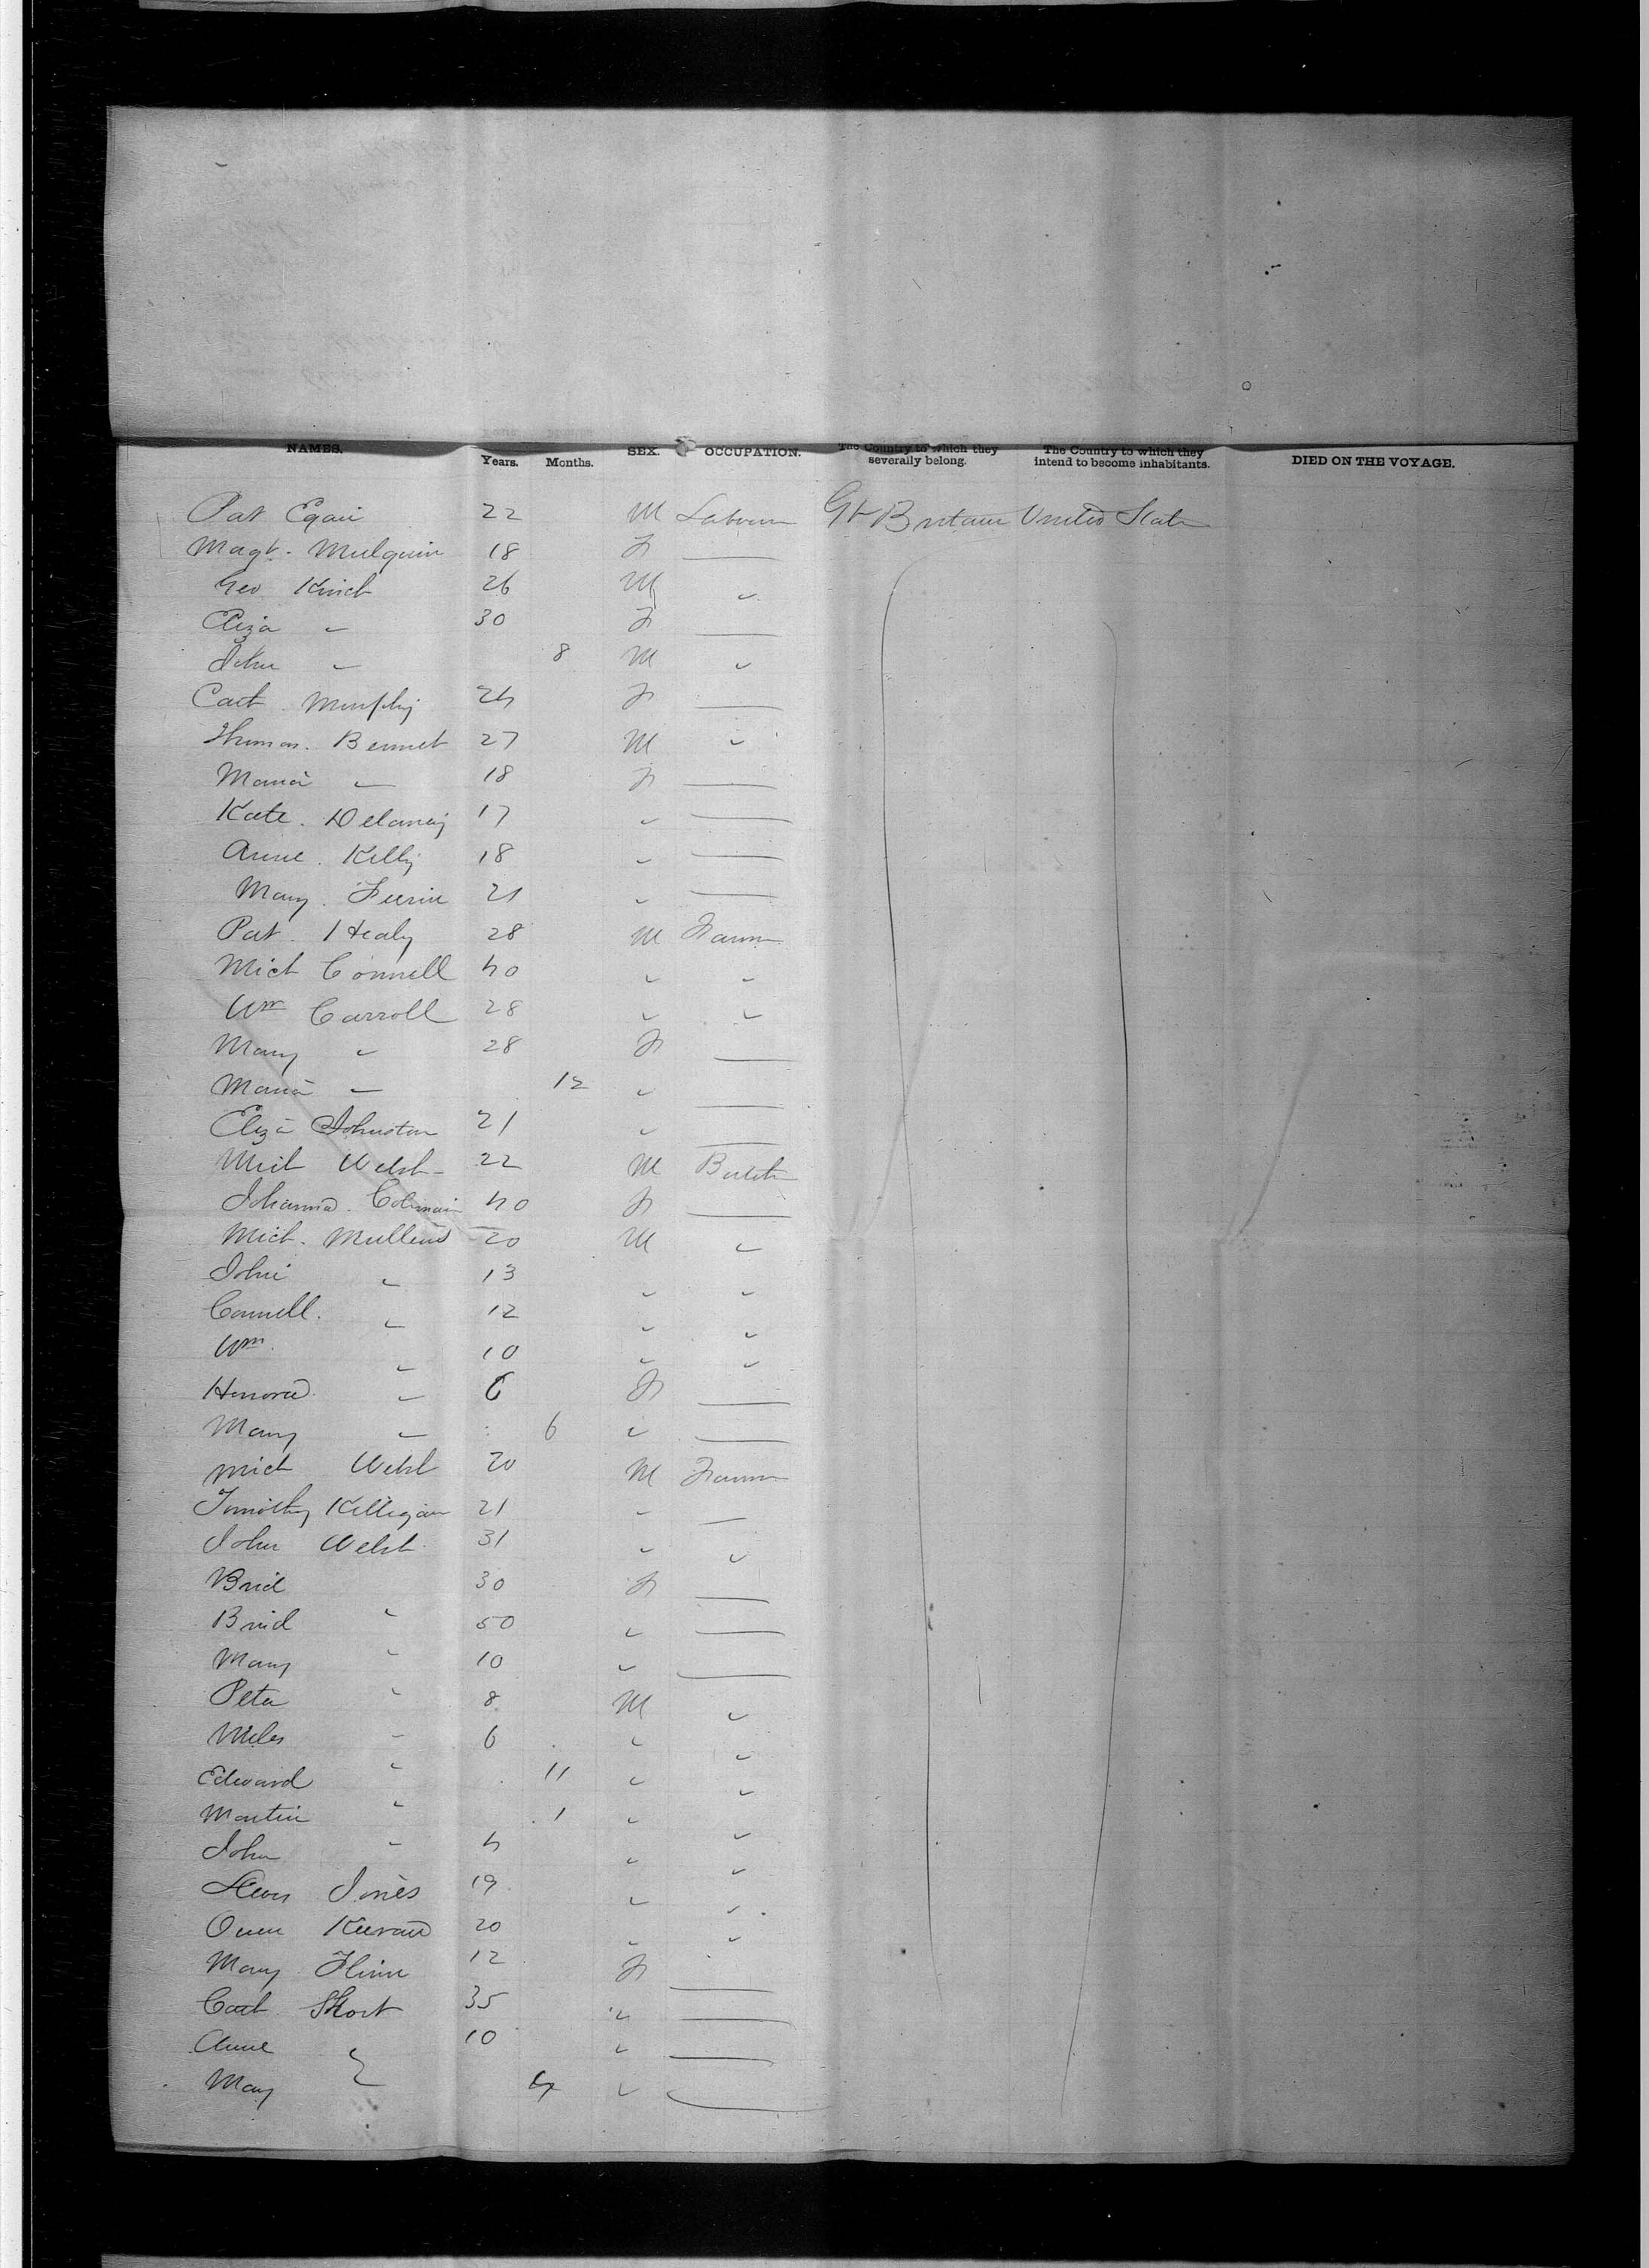 NAMES. Years. Months. SEX. OCCUPATION. The Country to which they severally belong. The Country to which they intend to become inhabitants. DIED ON THE VOYAGE.
Pat Egan 22 M Labourer Gt Britain United States
Magt. Mulquin 18 F —
Geo Kinch 26 M "
Eliza " 30 F —
John " 8 M "
Cath Murphy 24 F —
Thomas Bennet 27 M "
Maria " 18 F —
Kate Delaney 17 " —
Anne Kelly 18 " —
Mary 21 " —
Pat Healy 28 M Farmer
Mich Connell 40 " "
Wm Carroll 28 " "
Mary " 28 F —
Maria " 12 " —
Eliza Johnston 21 " —
Mich Welsh 22 M
Johanna Colman 40 F —
Mich. Mullens 20 M "
John " 13 " "
Connell " 12 " "
Wm " 10 " "
Honora " 6 F —
Mary " 6 " —
Mich Welsh 20 M Farmer
Timothy Killigan 21 " —
John Welsh 31 " "
Brid 30 F —
Brid " 50 " —
Mary " 10 " —
Peter " 8 M "
Miles " 6 " "
Edward " 11 " "
Martin " 1 " "
John " 4 " "
Jones 19 " "
Owen Keevan 20 " "
Mary Flinn 12 F —
Cath Short 35 " —
Anne } 10 " —
May } " —